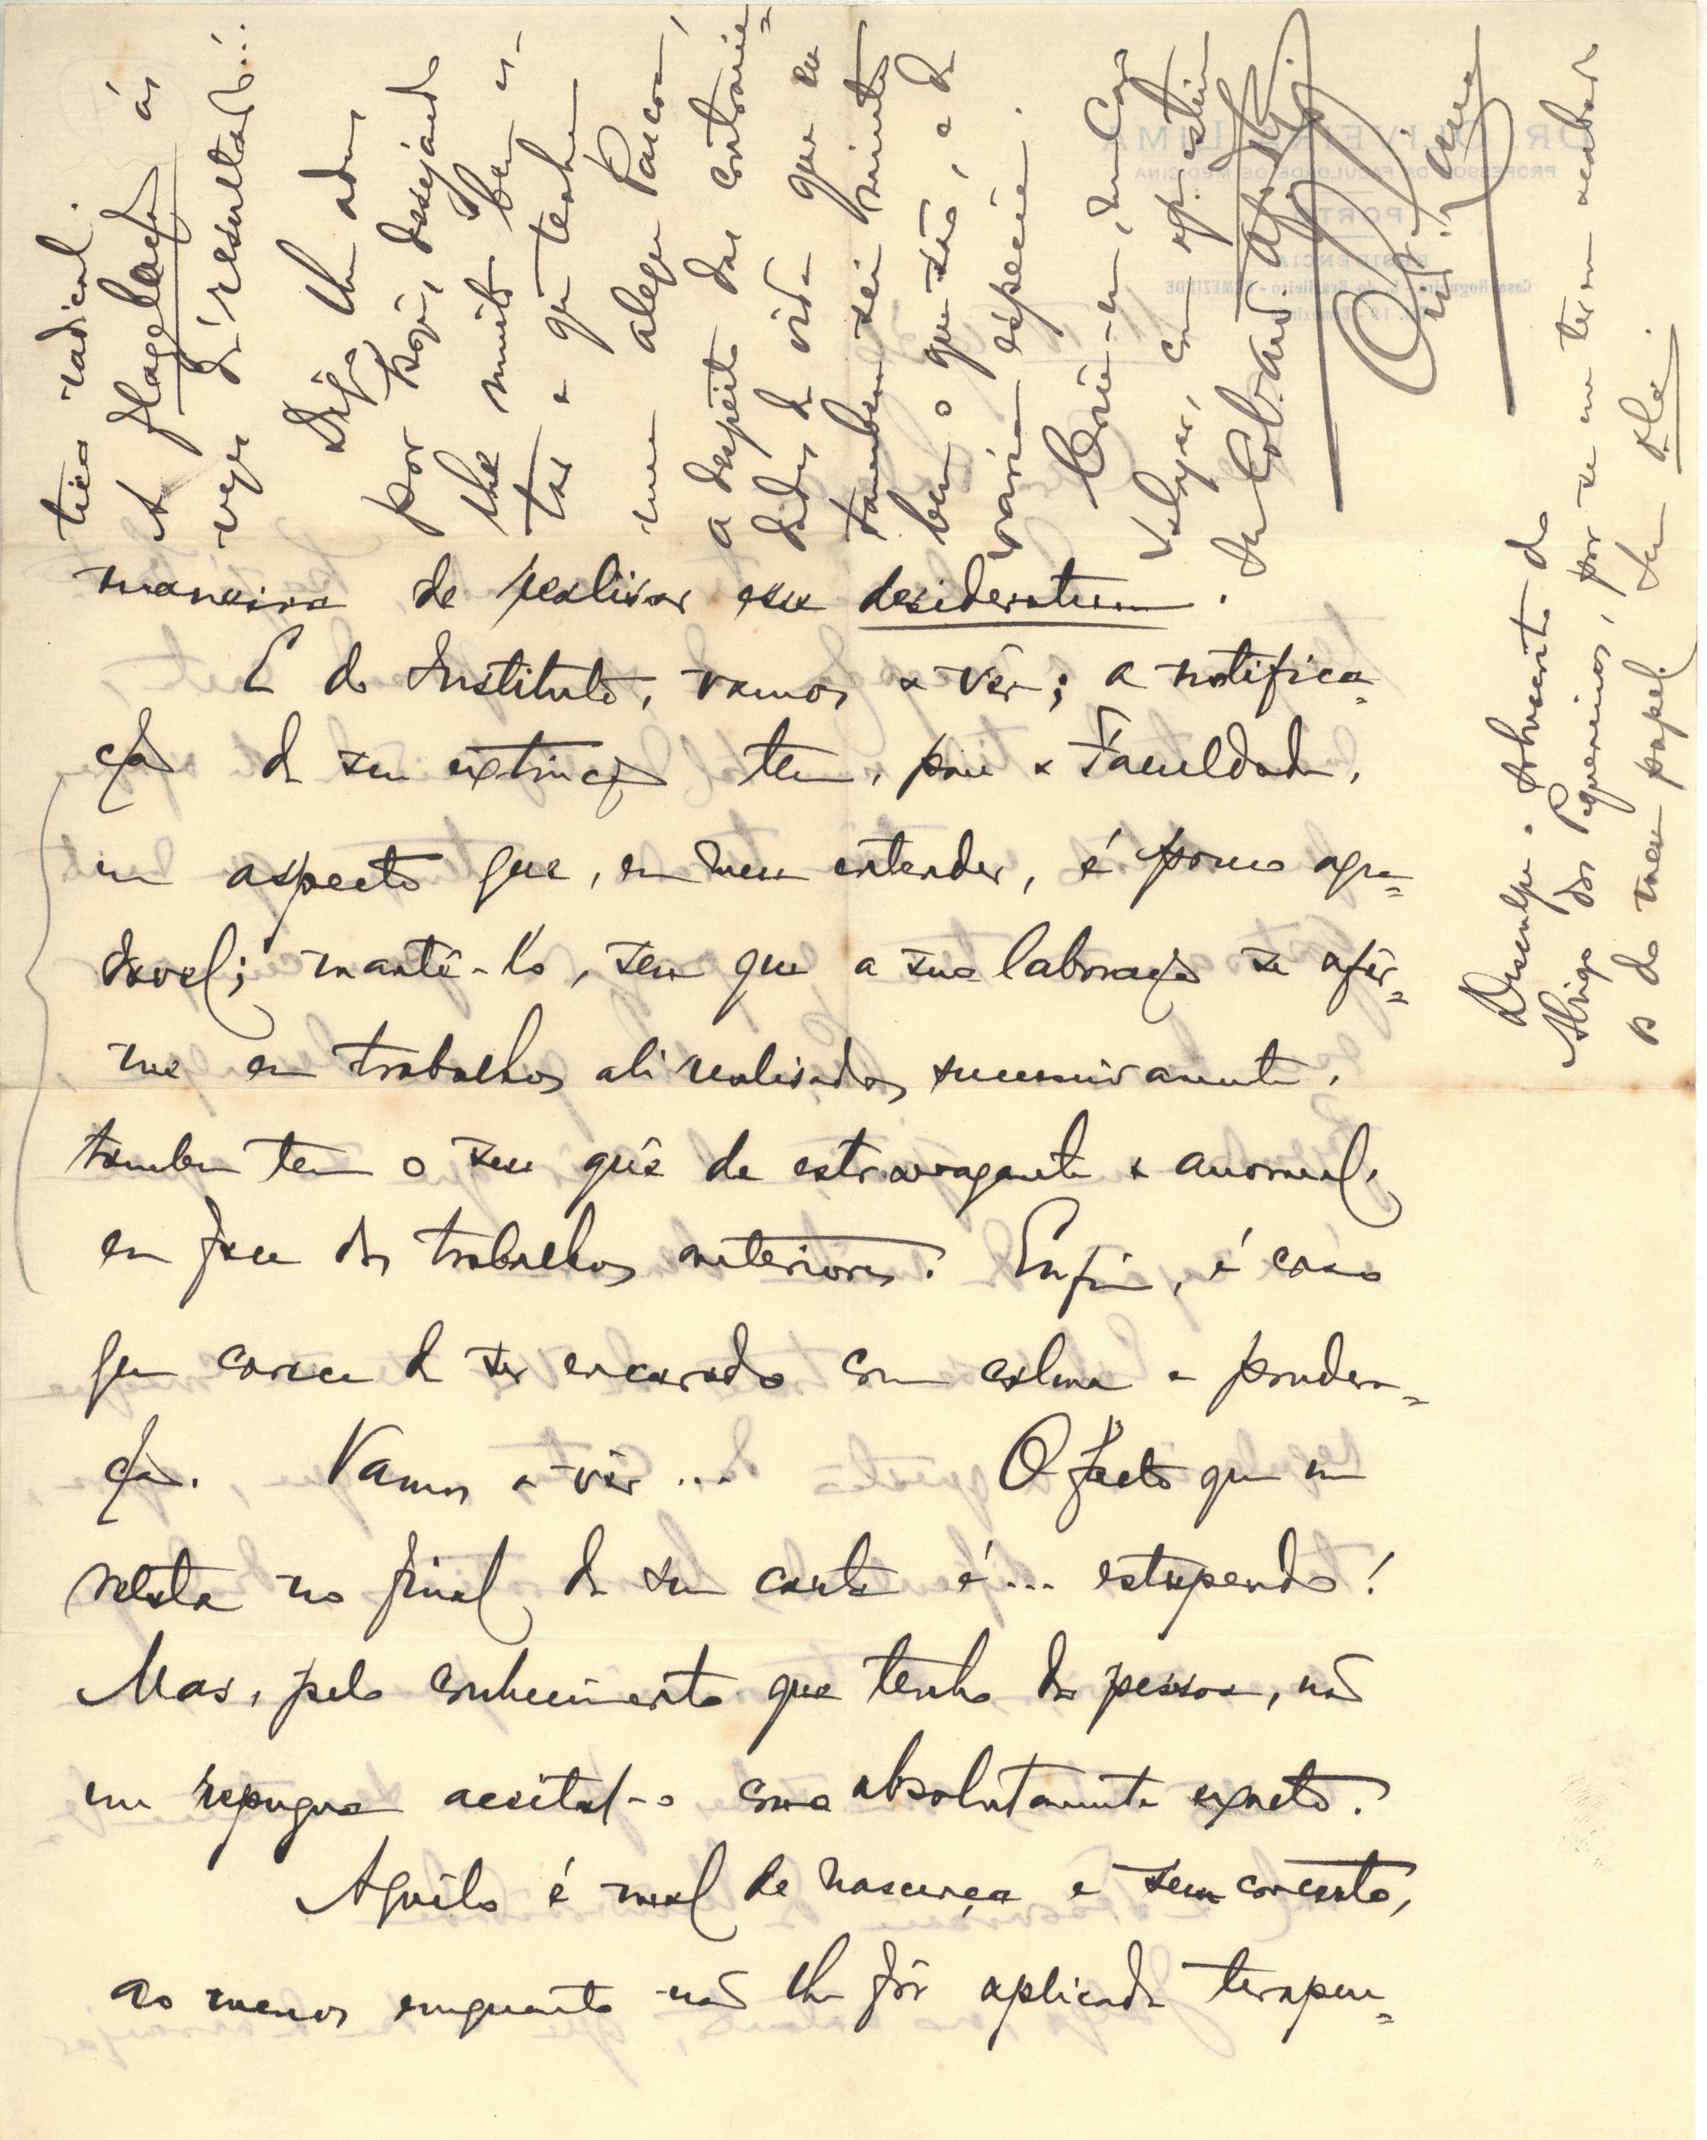 maneira de realisar esse desideratum.
E do Instituto, vamos a vêr; a notifica-
ção da sua extinção tem, para a Faculdade,
um aspecto que, em meu entender, é pouco agra-
davel; mantê-lo, sem que a sua laboração se afir-
me em trabalhos ali realisados sucessivamente,
tambem tem o seu quê de estravagante e anormal,
em face dos trabalhos anteriores. Enfim, é caso
que carece de ser encarado com calma e pondera-
ção. Vamos a vêr... O facto que me
relata no final da sua carta é... estupendo!
Mas, pelo conhecimento que tenho da pessoa, não
me repugna aceital-o como absolutamente exacto.
Aquilo é mal de nascença e sem concerto,
ao menos emquanto não lhe fôr aplicada terapeu-
tica radical.
A flagelação ás
vezes dá resultado...
Diga lhe adeus
por hoje, desejando
lhe muito bem es-
tar e que tenha
uma alegre Pascoa,
a despeito das contrarie-
dades da vida que eu
tambem sei muito
bem o que são, e de
varia espécie.
Creia-me, meu Caro
Colega, com a maior estima
seu Colega am.º
Oliv.ª Lima
Desculpe o sobrescrito do
Abrigo dos Pequeninos, por se me terem acabado
os do meu papel. Seu